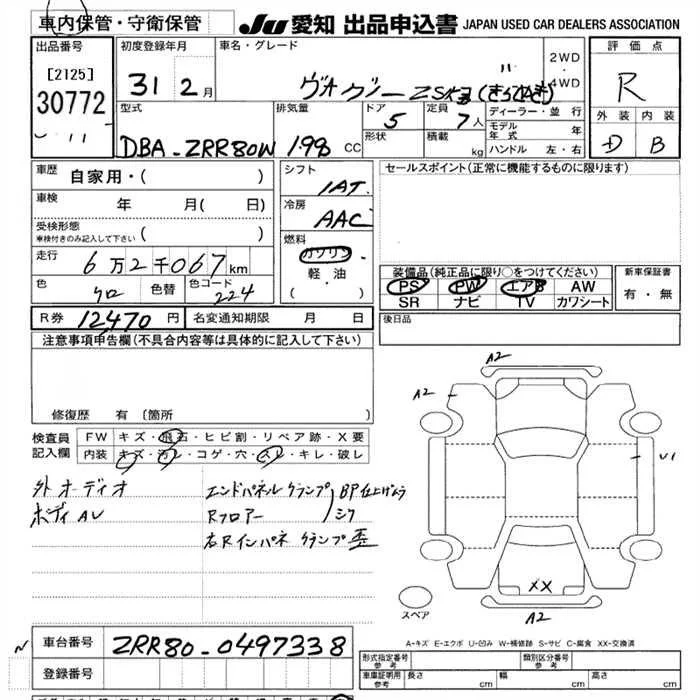 車内保管・守衛保管
JU 愛知 出品申込書 JAPAN USED CAR DEALERS ASSOCIATION
出品番号 初度登録年月 車名・グレード 2WD・4WD 評価点
[2125]
30772 31 2月 ヴォクシー ZS R
型式 排気量 ドア 5 定員 7人 ディーラー・並行 外装 内装
DBA-ZRR80W 1.98 CC 形状 積載 kg モデル年式 年 D B
ハンドル 左・右
車歴 自家用・( ) シフト 1AT セールスポイント(正常に機能するものに限ります)
車検 年 月( 日) 冷房 AAC
受検形態
車検付きのみ記入して下さい ( ) 燃料 ガソリン
走行 6万2千067km 軽・油
( ・ ) 装備品(純正品に限り○をつけてください) 新車保証書
色 クロ 色替 色コード 224 PS PW エアB AW 有・無
SR ナビ TV カワシート
R券 12470円 名変通知期限 月 日 後日品
注意事項申告欄(不具合内容等は具体的に記入して下さい)
A2
A2
修復歴 有〔箇所
検査員記入欄 FW キズ・飛石・ヒビ割・リペア跡・X要
内装 キズ・汚レ・コゲ・穴・スレ・キレ・破レ
U1
外オーディオ エンドパネルクランプ BP仕上げムラ
ボディAU Rフロアー シワ
右Rインパネ クランプ 歪
XX
スペア A2
A-キズ E-エクボ U-凹み W-補修跡 S-サビ C-腐食 XX-交換済
車台番号 ZRR80-0497338
形式指定番号 参考 類別区分番号 参考
登録番号 車庫証明用 参考 長さ cm 幅 cm 高さ cm